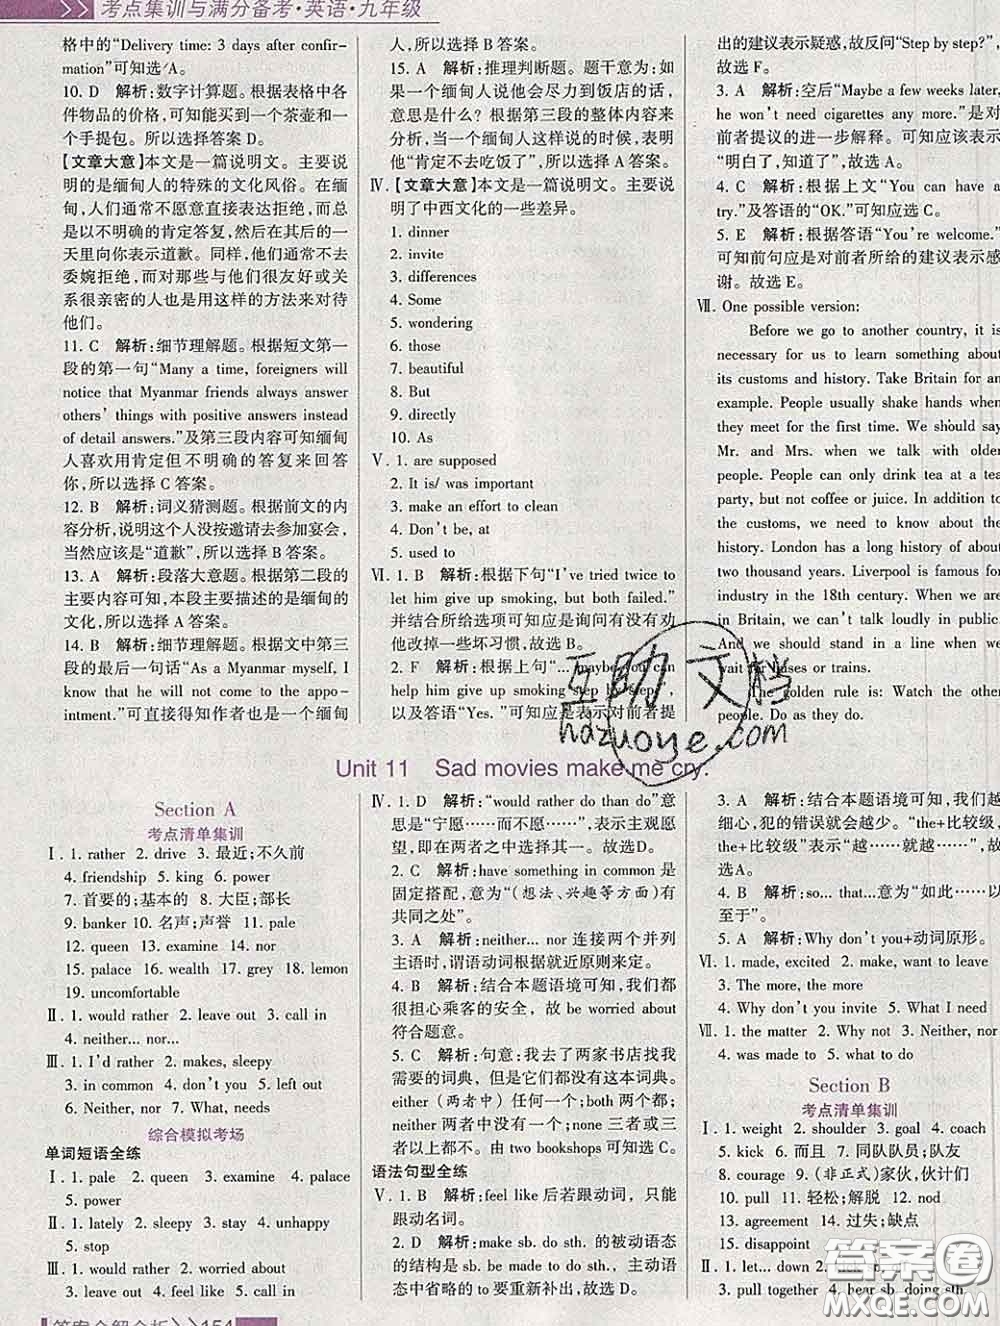 考点集训与满分备考·英语·九年级
格中的“Delivery time: 3 days after confir-
mation”可知选A。
10. D 解析:数字计算题。根据表格中各
件物品的价格,可知能买到一个茶壶和一
个手提包。所以选择答案D。
【文章大意】本文是一篇说明文。主要说
明的是缅甸人的特殊的文化风俗。在缅
甸,人们通常不愿意直接表达拒绝,而总
是以不明确的肯定答复,然后在其后的一
天里向你表示道歉。同样,他们通常不去
委婉拒绝,而对那些与他们很友好或关
系很亲密的人也是用这样的方法来对待
他们。
11. C 解析:细节理解题。根据短文第一
段的第一句“Many a time, foreigners will
notice that Myanmar friends always answer
others' things with positive answers instead
of detail answers.”及第三段内容可知缅甸
人喜欢用肯定但不明确的答复来回答
你,所以选择C答案。
12. B 解析:词义猜测题。根据前文的内
容分析,说明这个人没按邀请去参加宴会,
当然应该是“道歉”,所以选择B答案。
13. A 解析:段落大意题。根据第二段的
主要内容可知,本段主要描述的是缅甸的
文化,所以选择A答案。
14. B 解析:细节理解题。根据文中第三
段的最后一句话“As a Myanmar myself, I
know that he will not come to the appo-
intment.”可直接得知作者也是一个缅甸
人,所以选择B答案。
15. A 解析:推理判断题。题干意为:如
果一个缅甸人说他会尽力到饭店的话,
意思是什么?根据第三段的整体内容来
分析,当一个缅甸人这样说的时候,表明
他“肯定不去吃饭了”,所以选择A答案。
Ⅳ.【文章大意】本文是一篇说明文。主要说
明了中西文化的一些差异。
1. dinner
2. invite
3. differences
4. Some
5. wondering
6. those
7. beautiful
8. But
9. directly
10. As
Ⅴ. 1. are supposed
2. It is/ was important
3. make an effort to clean
4. Don't be, at
5. used to
Ⅵ. 1. B 解析:根据下句“I've tried twice to
let him give up smoking, but both failed.”
并结合所给选项可知应是询问有没有劝
他改掉一些坏习惯,故选B。
2. F 解析:根据上句“... maybe you can
help him give up smoking step by step”,
以及答语“Yes.”可知应是表示对前者提
出的建议表示疑惑,故反问“Step by step?”,
故选F。
3. A 解析:空后“Maybe a few weeks later,
he won't need cigarettes any more.”是对
前者提议的进一步解释。可知应该表示
“明白了,知道了”,故选A。
4. C 解析:根据上文“You can have a
try.”及答语的“OK.”可知应选C。
5. E 解析:根据答语“You're welcome.”
可知前句应是对前者所给的建议表示感
谢。故选E。
Ⅶ. One possible version:
Before we go to another country, it is
necessary for us to learn something about
its customs and history. Take Britain for an
example. People usually shake hands when
they meet for the first time. We should say
Mr. and Mrs. when we talk with older
people. People can only drink tea at a tea
party, but not coffee or juice. In addition to
the customs, we need to know about the
history. London has a long history of about
two thousand years. Liverpool is famous for
industry in the 18th century. When we are
in Britain, we can't talk loudly in public.
And we should stand in a line when we
wait for buses or trains.
The golden rule is: Watch the other
people. Do as they do.
互助文档
hdzuoye.com
Unit 11 Sad movies make me cry.
Section A
考点清单集训
Ⅰ. 1. rather 2. drive 3. 最近;不久前
4. friendship 5. king 6. power
7. 首要的;基本的 8. 大臣;部长
9. banker 10. 名声;声誉 11. pale
12. queen 13. examine 14. nor
15. palace 16. wealth 17. grey 18. lemon
19. uncomfortable
Ⅱ. 1. would rather 2. leave out 3. call in
4. neither... nor...
Ⅲ. 1. I'd rather 2. makes, sleepy
3. in common 4. don't you 5. left out
6. Neither, nor 7. What, needs
综合模拟考场
单词短语全练
Ⅰ. 1. pale 2. queen 3. examine 4. palace
5. power
Ⅱ. 1. lately 2. sleepy 3. stay 4. unhappy
5. stop
Ⅲ. 1. would rather 2. worried about
3. leave out 4. feel like 5. call in
Ⅳ. 1. D 解析:“would rather do than do”意
思是“宁愿……而不愿……”,表示主观愿
望,即在两者之中选择其一。故选D。
2. C 解析:have something in common是
固定搭配,意为“(想法、兴趣等方面)有
共同之处”。
3. A 解析:neither... nor 连接两个并列
主语时,谓语动词根据就近原则来定。
4. B 解析:结合本题语境可知,我们都
很担心乘客的安全,故 be worried about
符合题意。
5. C 解析:句意:我去了两家书店找我
需要的词典,但是它们都没有这本词典。
either (两者中)任何一个;both 两个都;
neither 两者都不;none 三者或三者以上
都不。由 two bookshops 可知选C。
语法句型全练
Ⅴ. 1. B 解析:feel like 后若跟动词,只能
跟动名词。
2. D 解析:make sb. do sth. 的被动语态
的结构是 sb. be made to do sth.,主动语态
中省略的 to 要重新补出,故选D。
3. A 解析:结合本题语境可知,我们越
细心,犯的错误就会越少。“the+比较级,
the+比较级”表示“越……就越……”,故
选A。
4. B 解析:so... that...意为“如此……以
至于”。
5. A 解析:Why don't you+动词原形。
Ⅵ. 1. made, excited 2. made me want
3. The more, the more
4. Why don't you invite 5. What I need
Ⅶ. 1. the matter 2. Why not 3. Neither, nor
4. was made to 5. what to do
Section B
考点清单集训
Ⅰ. 1. weight 2. shoulder 3. goal 4. coach
5. kick 6. 而且 7. 同队队员;队友
8. courage 9. (非正式)家伙,伙计们
10. pull 11. 轻松;解脱 12. nod
13. agreement 14. 过失;缺点
15. disappoint
Ⅱ. 1. let... down
3. pull together 4. bear sb. doing sth.
答案圈
MXQE.COM
答案全解全析 154